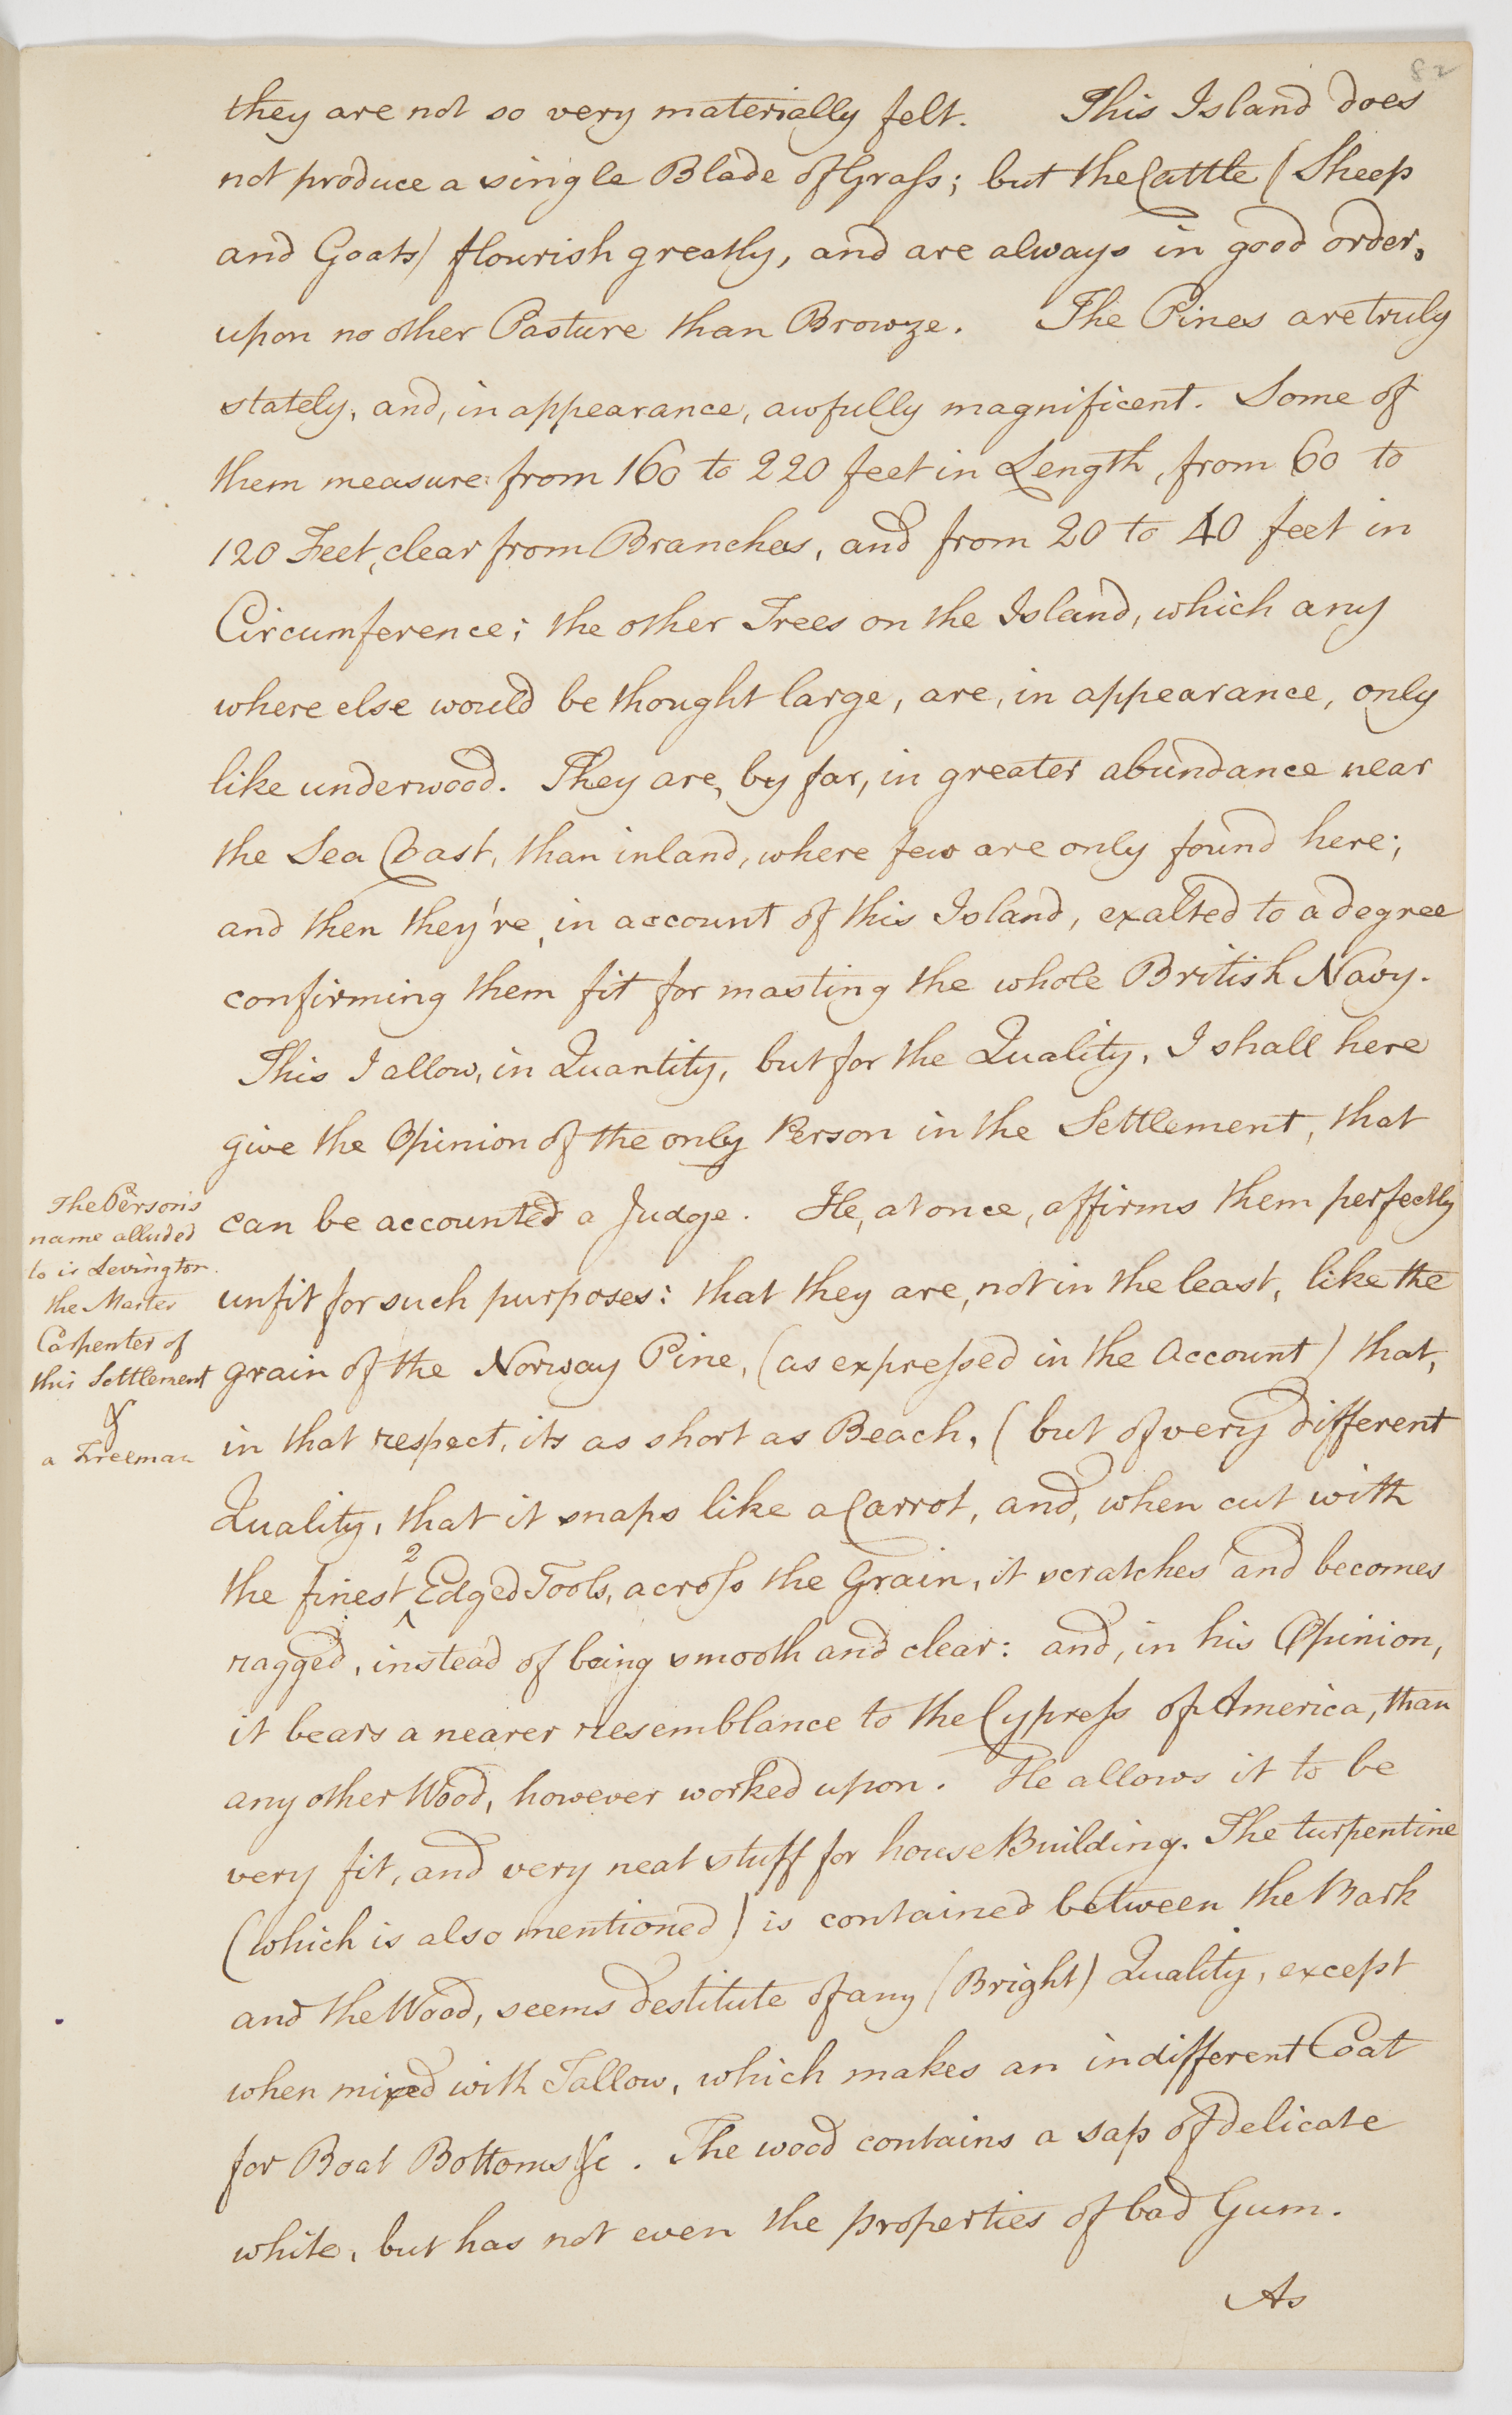 82
they are not so very materially felt. This Island does
not produce a single Blade of Graſs; but the Cattle (Sheep
and Goats) flourish greatly, and are always in good order,
upon no other Pasture than Browze. The Pines are truly
stately, and, in appearance, awfully magnificent. Some of
them measure from 160 to 220 feet in Length, from 60 to
120 Feet, clear from Branches, and from 20 to 40 feet in
Circumference; the other Trees on the Island, which any
where else would be thought large, are, in appearance, only
like underwood. They are, by far, in greater abundance near
the Sea Coast, than inland, where few are only found here;
and then they're, in account of this Island, exalted to a degree
confirming them fit for masting the whole British Navy.
This I allow, in Quantity, but for the Quality, I shall here
give the Opinion of the only Person in the Settlement, that
can be accounted a Judge. He, at once, affirms them perfectly
unfit for such purposes: that they are, not in the least, like the
grain of the Norway Pine, (as expreſsed in the Account) that,
in that respect, its as short as Beach, (but of very different
Quality, that it snaps like a Carrot, and, when cut with
the finest ^2 Edged Tools, acroſs the Grain, it scratches and becomes
ragged, instead of being smooth and clear: and, in his Opinion,
it bears a nearer resemblance to the Cypreſs of America, than
any other Wood, however worked upon. He allows it to be
very fit, and very neat stuff for house Building. The turpentine
(which is also mentioned) is contained between the Bark
and the Wood, seems destitute of any (Bright) Quality, except
when mixed with Tallow, which makes an indifferent Coat
for Boat Bottoms &c. The wood contains a sap of delicate
white, but has not even the properties of bad Gum.
As
The Person's
name alluded
to is Levington.
the Master
Carpenter of
this Settlement
&
a Freeman